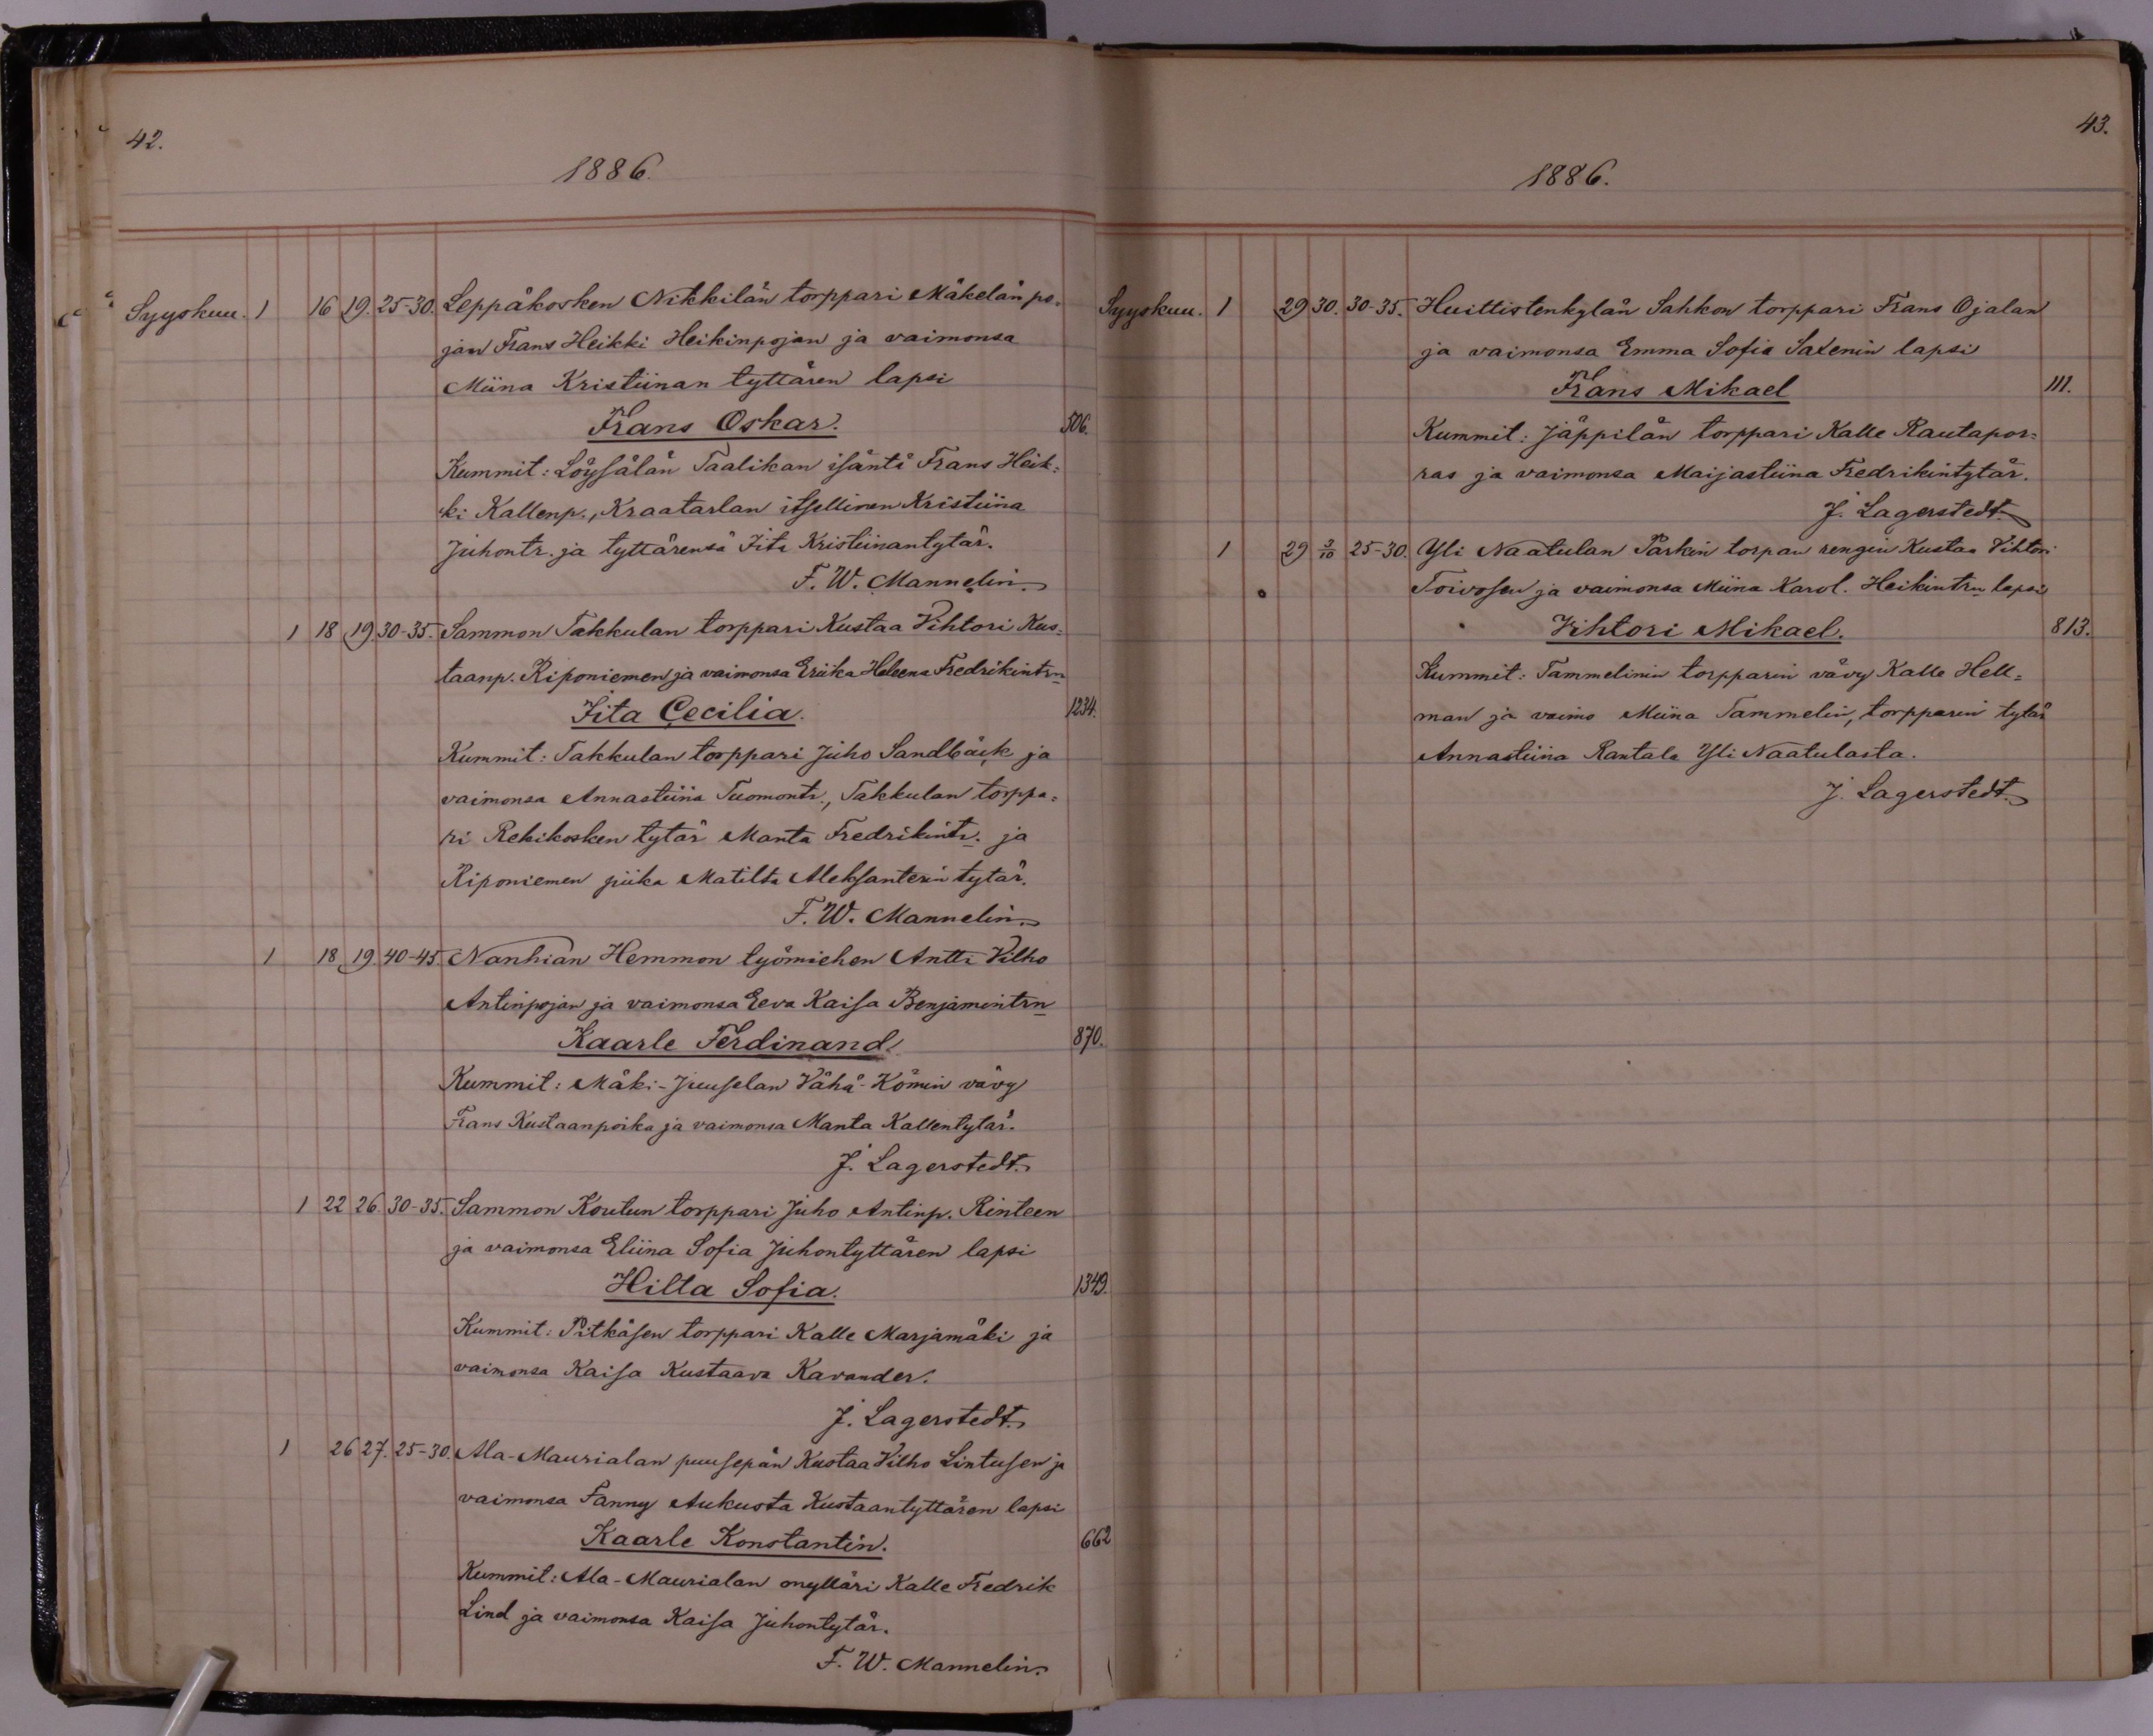 42.
1886.
Syyskuu. 1 16 19. 25-30. Leppäkosken Nikkilän torppari Mäkelän po-
jan Frans Heikki Heikinpojan ja vaimonsa
Miina Kristiinan tyttären lapsi
Frans Oskar. 506.
Kummit: Löysälän Taalikan isäntä Frans Heik-
ki Kallenp., Kraatarlan itsellinen Kristiina
Juhontr. ja tyttärensä Iita Kristiinantytär.
F. W. Mannelin.
1 18 19. 30-35. Sammon Takkulan torppari Kustaa Vihtori Kus-
taanp. Riponiemen ja vaimonsa Eriika Heleena Fredrikintrn
Iita Cecilia. 1234.
Kummit: Takkulan torppari Juho Sandbäck ja
vaimonsa Annastiina Tuomontr., Takkulan torppa-
ri Rekikosken tytär Manta Fredrikintr. ja
Riponiemen piika Matilta Aleksanterin tytär.
F. W. Mannelin.
1 18. 19. 40-45. Nanhian Hemmon työmiehen Antti Vilho
Antinpojan ja vaimonsa Eeva Kaisa Benjamintrn
Kaarle Ferdinand. 870.
Kummit: Mäki-Juuselan Vähä-Kömin vävy
Frans Kustaanpoika ja vaimonsa Manta Kallentytär.
J. Lagerstedt.
1 22 26. 30-35. Sammon Koutun torppari Juho Antinp. Rinteen
ja vaimonsa Eliina Sofia Juhontyttären lapsi
Hilta Sofia. 1349.
Kummit: Pitkäsen torppari Kalle Marjamäki ja
vaimonsa Kaisa Kustaava Kavander.
J. Lagerstedt.
1 26 27. 25-30. Ala-Maurialan puusepän Kustaa Vilho Lintusen ja
vaimonsa Fanny Aukusta Kustaantyttären lapsi
Kaarle Konstantin. 662
Kummit: Ala-Maurialan mylläri Kalle Fredrik
Lind ja vaimonsa Kaisa Juhontytär.
F. W. Mannelin.
43.
1886.
Syyskuu. 1 29 30. 30-35. Huittistenkylän Sahkon torppari Frans Ojalan
ja vaimonsa Emma Sofia Saxenin lapsi
Frans Mikael 111.
Kummit: Jäppilän torppari Kalle Rautapor-
ras ja vaimonsa Maijastiina Fredrikintytär.
J. Lagerstedt.
1 29 3/10 25-30. Yli Naatulan Parkin torpan rengin Kustaa Vihtori
Toivosen ja vaimonsa Miina Karol. Heikintrn lapsi
Vihtori Mikael. 813.
Kummit: Tammelinin torpparin vävy Kalle Hell-
man ja vaimo Miina Tammelin, torpparin tytär
Annastiina Rantala Yli Naatulasta.
J. Lagerstedt.